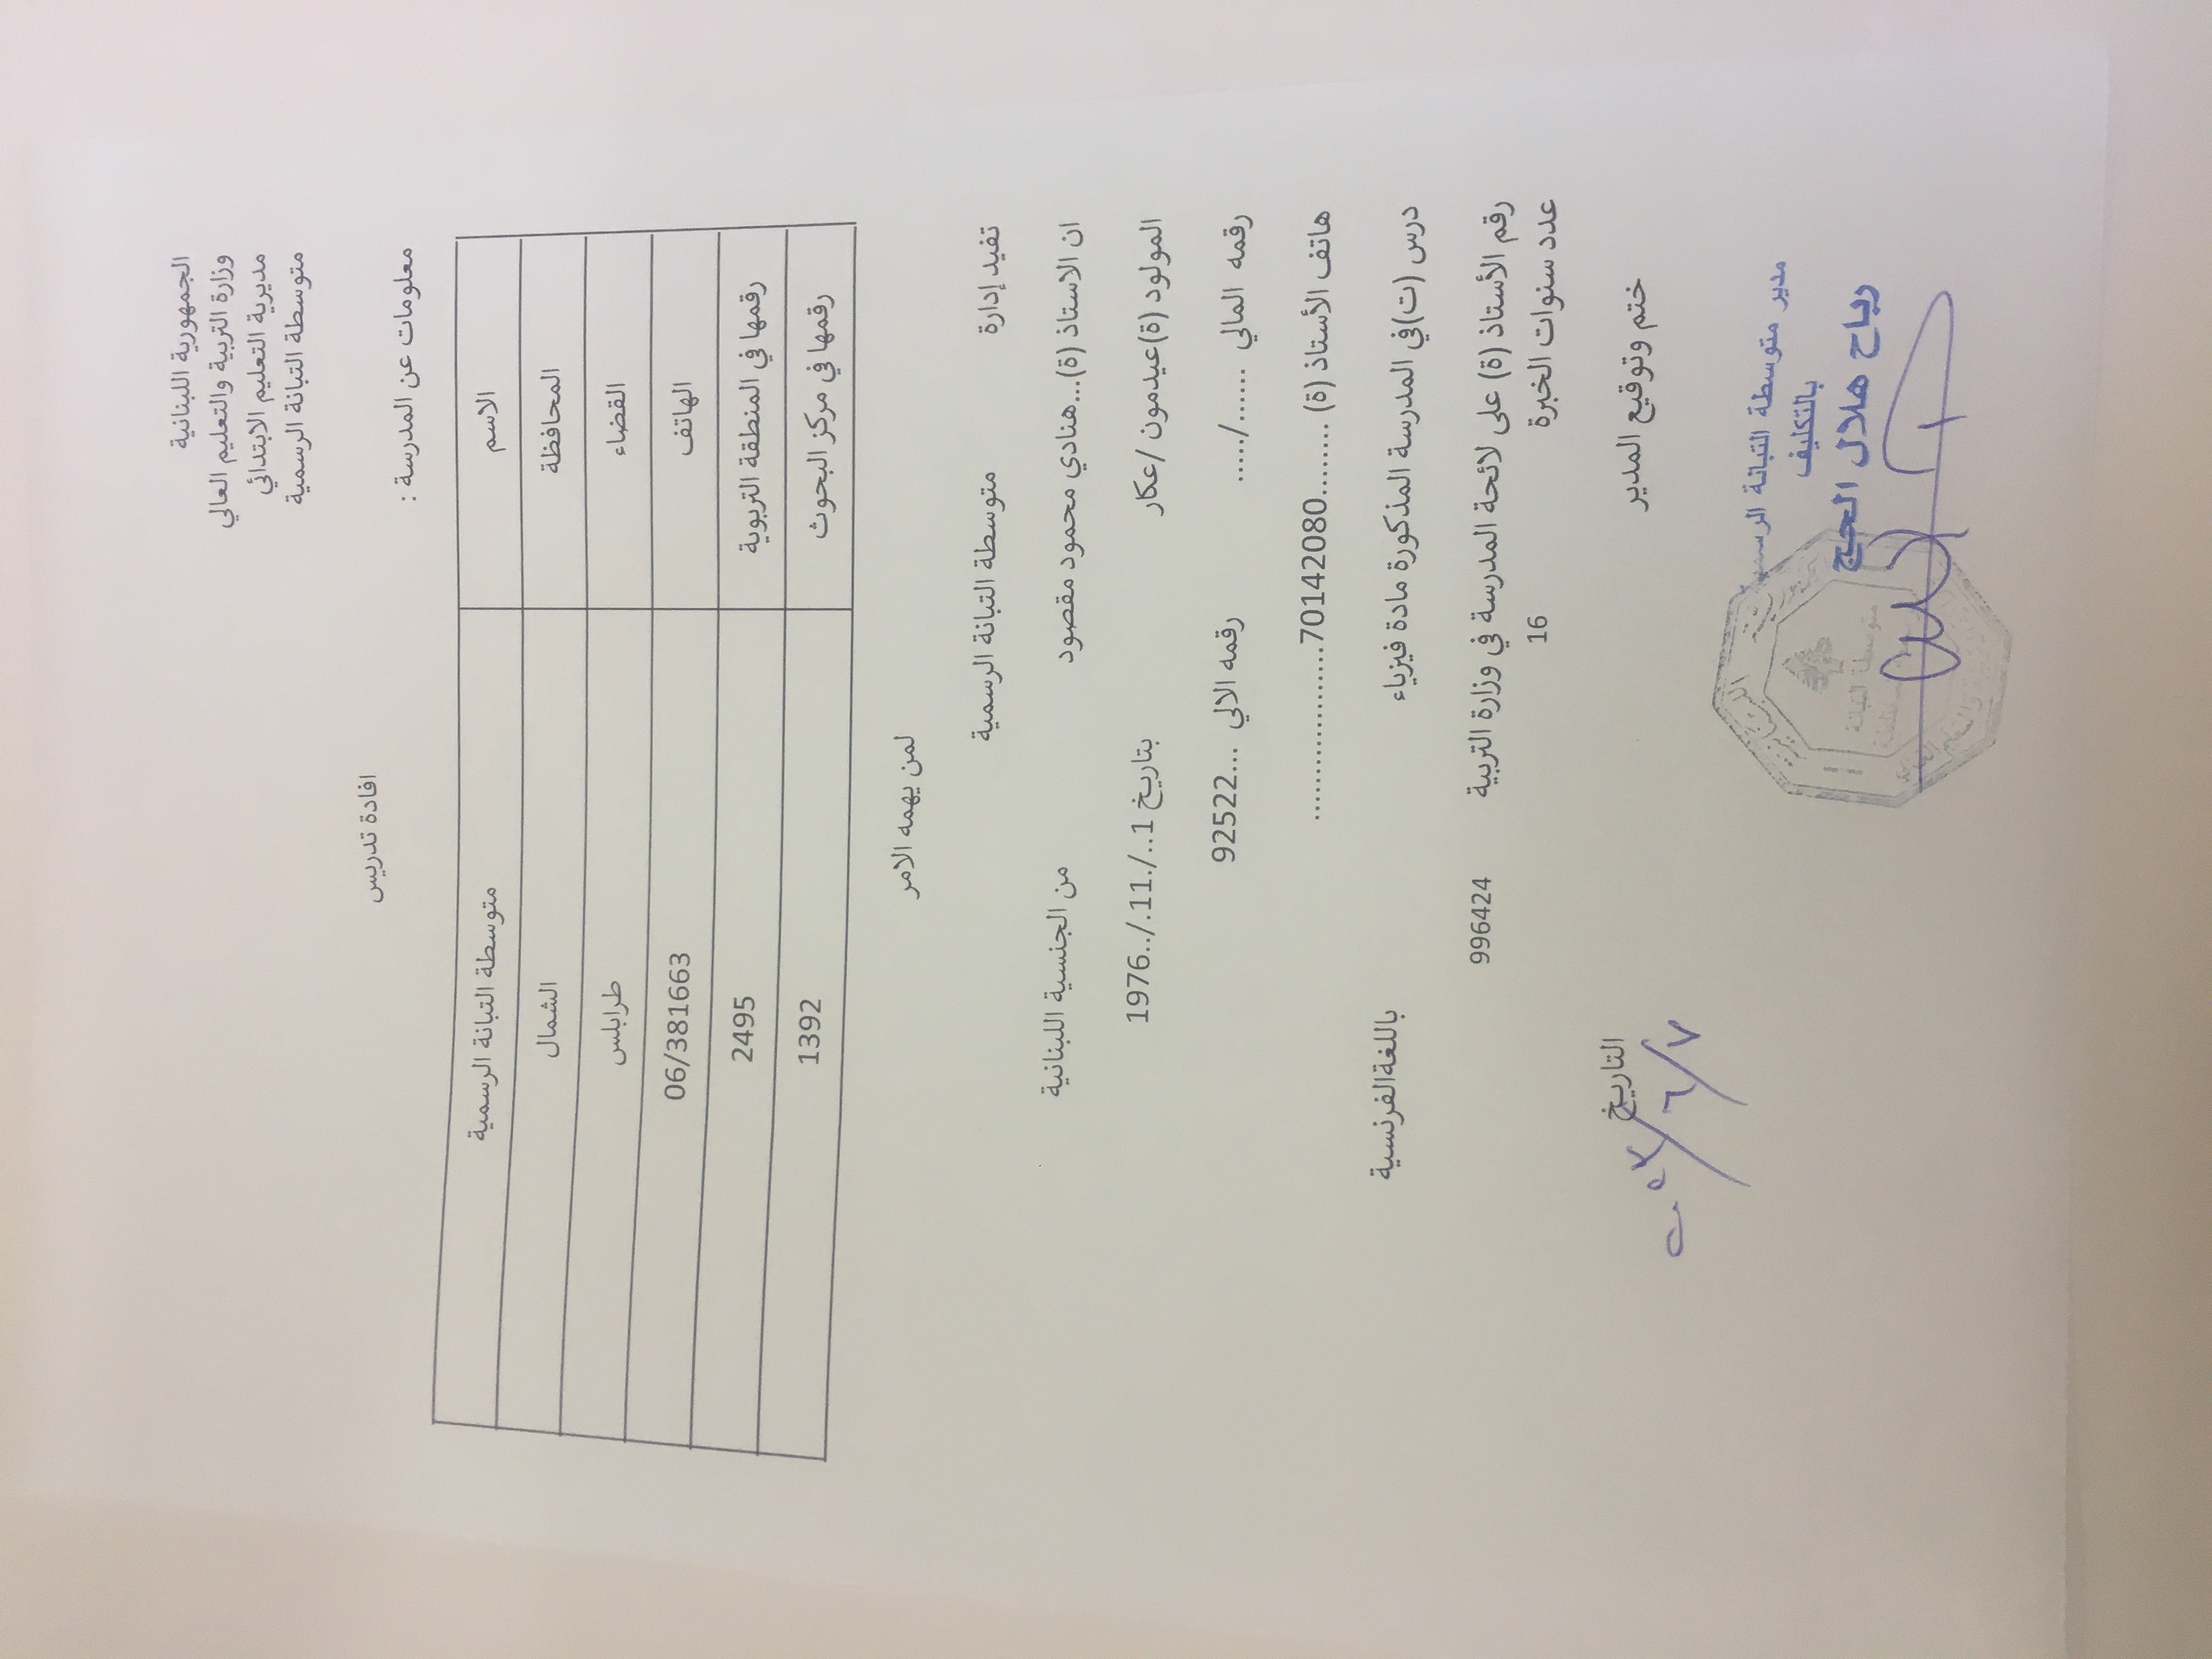 الجمهورية اللبنانية
وزارة التربية والتعليم العالي
مديرية التعليم الابتدائي
متوسطة التبانة الرسمية
افادة تدريس
معلومات عن المدرسة :
الاسم متوسطة التبانة الرسمية
المحافظة الشمال
القضاء طرابلس
الهاتف 06/381663
رقمها في المنطقة التربوية 2495
رقمها في مركز البحوث 1392
لمن يهمه الامر
تفيد إدارة متوسطة التبانة الرسمية
ان الاستاذ (ة)...هنادي محمود مقصود من الجنسية اللبنانية
المولود (ة)عيدمون /عكار بتاريخ 1../.11./..1976
رقمه المالي ....../..... رقمه الالي ...92522
هاتف الأستاذ (ة) ........70142080..................
درس (ت)في المدرسة المذكورة مادة فيزياء باللغةالفرنسية
رقم الأستاذ (ة) على لائحة المدرسة في وزارة التربية 996424
عدد سنوات الخبرة 16
ختم وتوقيع المدير التاريخ
مدير متوسطة التبانة
بالتكليف
رباح هلال الحج